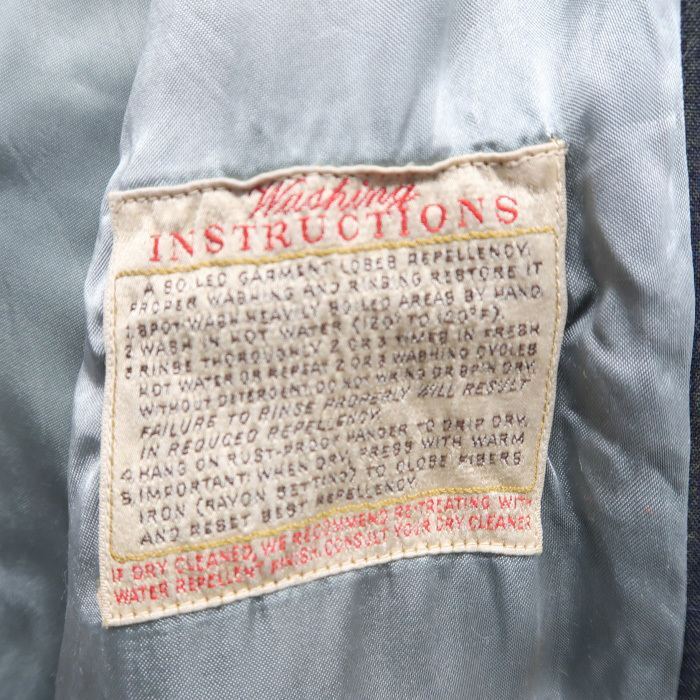 Washing
INSTRUCTIONS
A SOILED GARMENT LOSES REPELLENCY.
PROPER WASHING AND RINSING RESTORE IT
1. SPOT-WASH HEAVILY SOILED AREAS BY HAND.
2. WASH IN HOT WATER (120°F TO 120°F).
3. RINSE THOROUGHLY 2 OR 3 TIMES IN FRESH
HOT WATER OR REPEAT 2 OR 3 WASHING CYCLES
WITHOUT DETERGENT. DO NOT WRING OR SPIN DRY.
FAILURE TO RINSE PROPERLY WILL RESULT
IN REDUCED REPELLENCY.
4. HANG ON RUST-PROOF HANGER TO DRIP DRY.
5. IMPORTANT: WHEN DRY, PRESS WITH WARM
IRON (RAYON SETTING) TO CLOSE FIBERS
AND RESET BEST REPELLENCY
IF DRY CLEANED, WE RECOMMEND RE-TREATING WITH
WATER REPELLENT FINISH. CONSULT YOUR DRY CLEANER